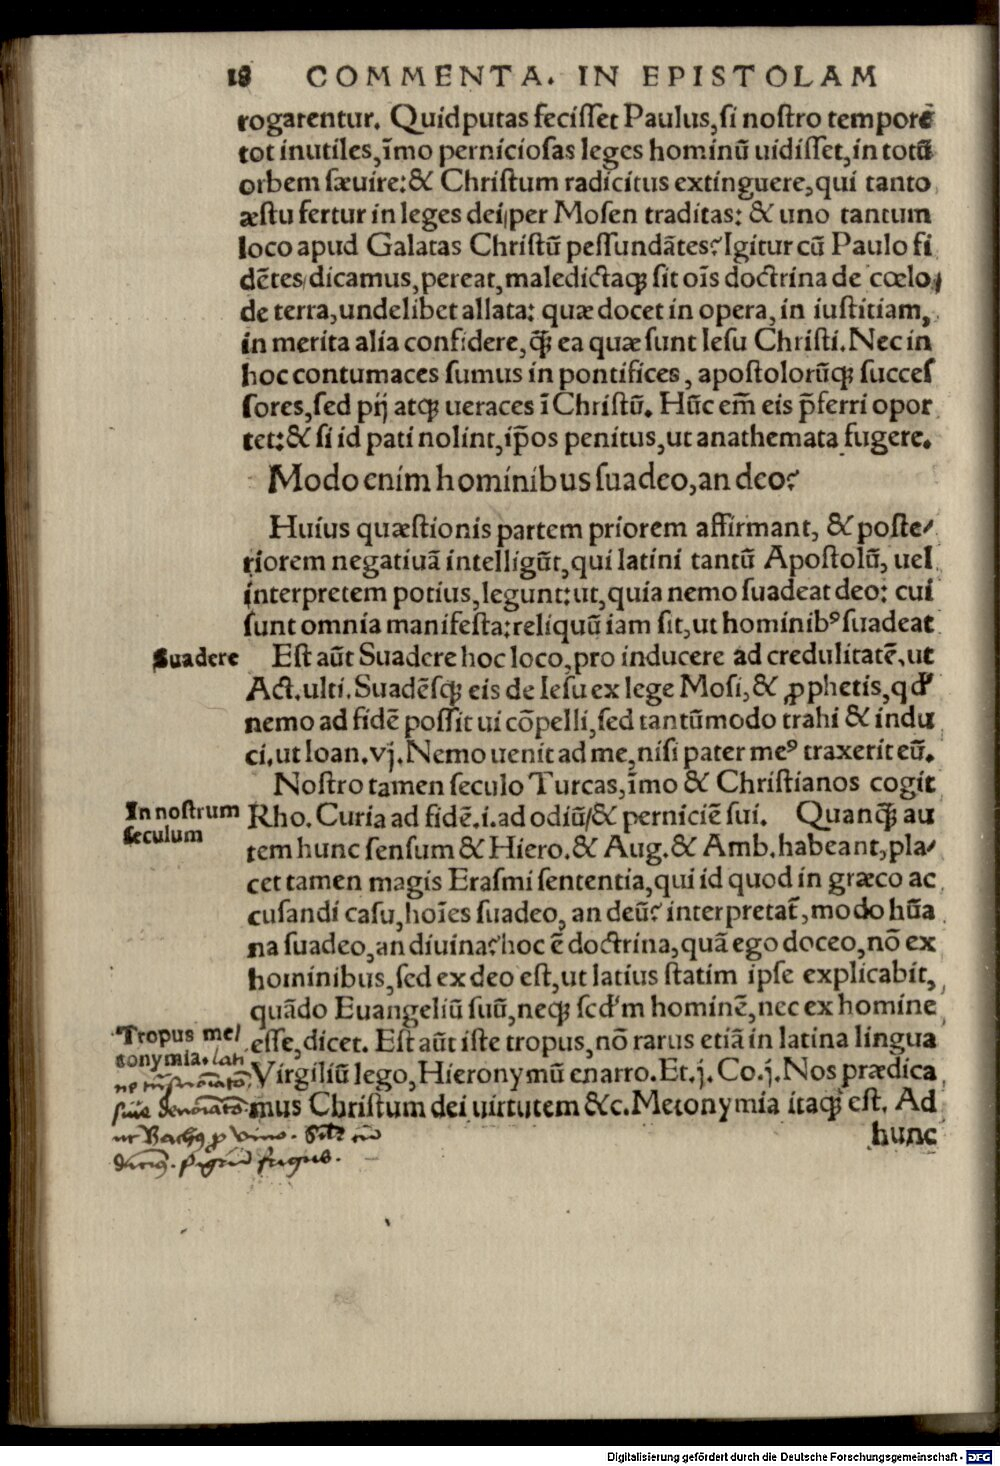 18 COMMENTA. IN EPISTOLAM
rogarentur. Quid putas feciſſet Paulus, ſi noſtro tempore
tot inutiles, ĩmo pernicioſas leges hominũ uidiſſet, in totũ
orbem ſæuire: & Chriſtum radicitus extinguere, qui tanto
æſtu fertur in leges dei/ per Moſen traditas: & uno tantum
loco apud Galatas Chriſtũ peſſundãtes? Igitur cũ Paulo fi
dẽtes/ dicamus, pereat, maledictaqꝫ ſit oĩs doctrina de cœlo/
de terra, undelibet allata: quæ docet in opera, in iuſtitiam,
in merita alia confidere, q̃ꝫ ea quæ ſunt Ieſu Chriſti. Nec in
hoc contumaces ſumus in pontifices, apoſtolorũqꝫ ſucceſ
ſores, ſed pij atqꝫ ueraces ĩ Chriſtũ. Hũc em̃ eis p̃ferri opor
tet: & ſi id pati nolint, ip̃os penitus, ut anathemata fugere.
Modo enim hominibus ſuadeo, an deo?
Huius quæſtionis partem priorem affirmant, & poſte/
riorem negatiuã intelligũt, qui latini tantũ Apoſtolũ, uel
interpretem potius, legunt: ut, quia nemo ſuadeat deo: cui
ſunt omnia manifeſta: reliquũ iam ſit, ut hominibꝰ ſuadeat
Suadere
Eſt aũt Suadere hoc loco, pro inducere ad credulitatẽ, ut
Act. ulti. Suadẽſqꝫ eis de Ieſu ex lege Moſi, & ꝓphetis, qd'
nemo ad fidẽ poſſit ui cõpelli, ſed tantũmodo trahi & indu
ci, ut Ioan. vj. Nemo uenit ad me, niſi pater meꝰ traxerit eũ.
Noſtro tamen ſeculo Turcas, ĩmo & Chriſtianos cogit
In noſtrum
ſeculum
Rho. Curia ad fidẽ .i. ad odiũ/ & perniciẽ ſui. Quanq̃ꝫ au
tem hunc ſenſum & Hiero. & Aug. & Amb. habeant, pla/
cet tamen magis Eraſmi ſententia, qui id quod in græco ac
cuſandi caſu, hoĩes ſuadeo, an deũ? interpretat̃, modo hũa
na ſuadeo, an diuina? hoc ẽ doctrina, quã ego doceo, nõ ex
hominibus, ſed ex deo eſt, ut latius ſtatim ipſe explicabit,
quãdo Euangeliũ ſuũ, neqꝫ ſcd'm hominẽ, nec ex homine
Tropus me/
tonymia. lati
eſſe, dicet. Eſt aũt iſte tropus, nõ rarus etiã in latina lingua
Virgiliũ lego, Hieronymũ enarro. Et .j. Co. j. Nos prædica
mus Chriſtum dei uirtutem &c. Metonymia itaqꝫ eſt. Ad
hunc
Digitalisierung gefördert durch die Deutsche Forschungsgemeinschaft - DFG